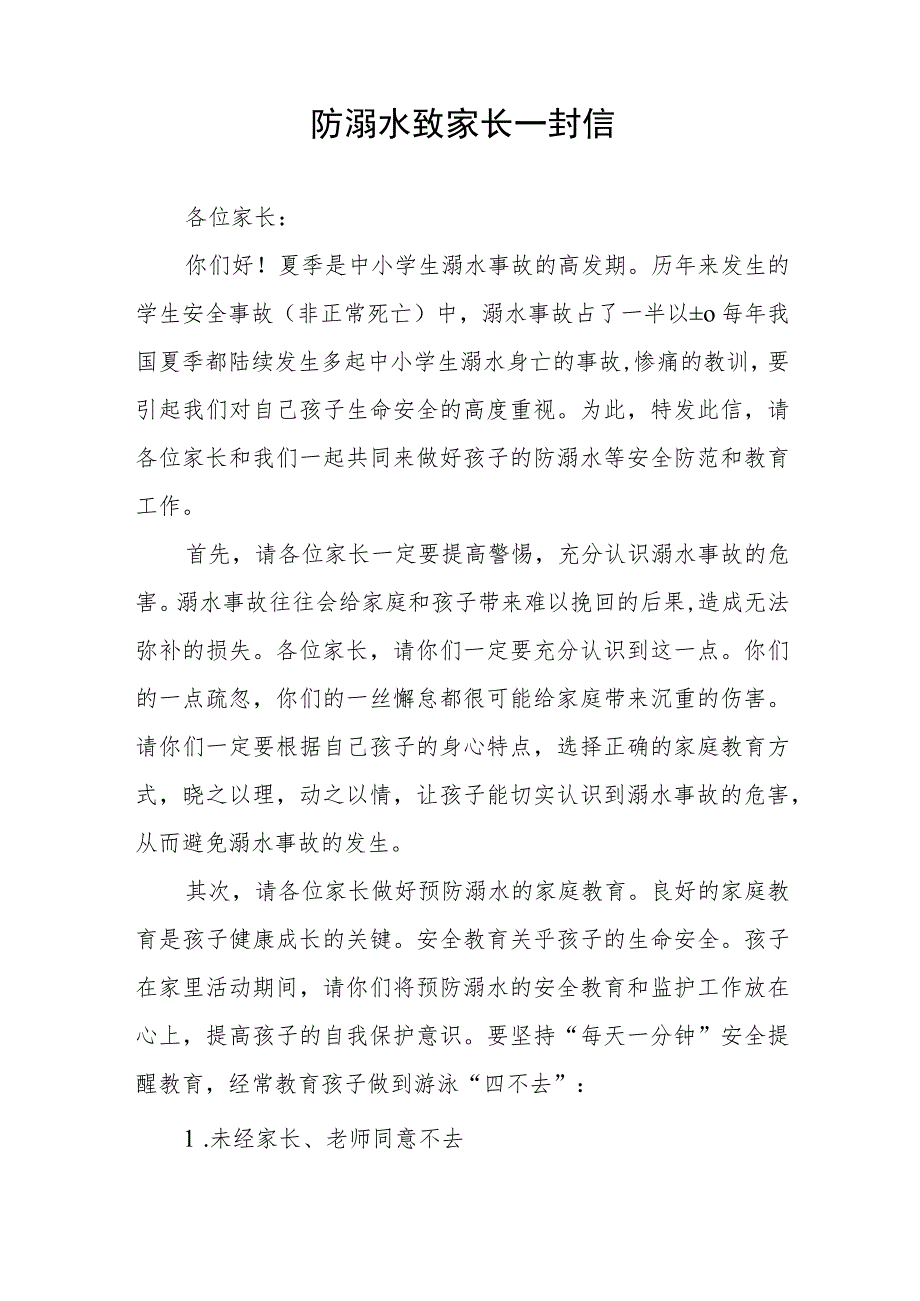 防溺水致家长一封信
各位家长：
你们好！夏季是中小学生溺水事故的高发期。历年来发生的
学生安全事故（非正常死亡）中，溺水事故占了一半以±o每年我
国夏季都陆续发生多起中小学生溺水身亡的事故,惨痛的教训，要
引起我们对自己孩子生命安全的高度重视。为此，特发此信，请
各位家长和我们一起共同来做好孩子的防溺水等安全防范和教育
工作。
首先，请各位家长一定要提高警惕，充分认识溺水事故的危
害。溺水事故往往会给家庭和孩子带来难以挽回的后果,造成无法
弥补的损失。各位家长，请你们一定要充分认识到这一点。你们
的一点疏忽，你们的一丝懈怠都很可能给家庭带来沉重的伤害。
请你们一定要根据自己孩子的身心特点，选择正确的家庭教育方
式，晓之以理，动之以情，让孩子能切实认识到溺水事故的危害，
从而避免溺水事故的发生。
其次，请各位家长做好预防溺水的家庭教育。良好的家庭教
育是孩子健康成长的关键。安全教育关乎孩子的生命安全。孩子
在家里活动期间，请你们将预防溺水的安全教育和监护工作放在
心上，提高孩子的自我保护意识。要坚持“每天一分钟”安全提
醒教育，经常教育孩子做到游泳“四不去”：
1 .未经家长、老师同意不去